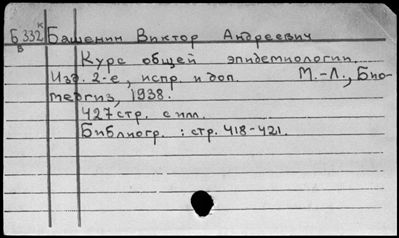 Б 332 к Башенин Виктор Андреевич
в
Курс общей эпидемиологии.
Изд. 2-е, испр. и доп. М.-Л., Био-
медгиз, 1938.
427 стр. с илл.
Библиогр.: стр. 418-421.